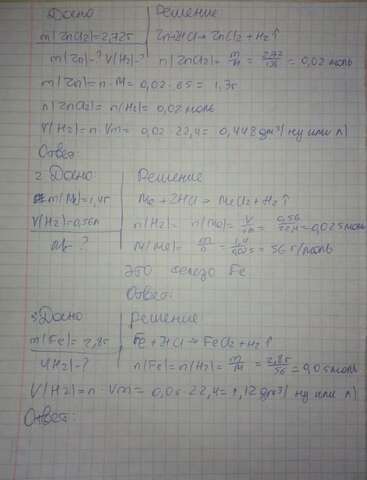 Дано Решение
m(ZnCl2)=2,72г Zn+2HCl→ZnCl2+H2↑
m(Zn)-? V(H2)-? n(ZnCl2)= m/M = 2,72/136 = 0,02 моль
m(Zn)=n·M=0,02·65=1,3г
n(ZnCl2)=n(H2)=0,02 моль
V(H2)=n·Vm=0,02·22,4=0,448 дм³(ну или л)
Ответ:
2 Дано Решение
m(Me)=1,4г Me+2HCl→MeCl2+H2↑
V(H2)=0,56л n(H2)=n(Me)= V/Vm = 0,56/22,4 =0,025 моль
? M(Me)= m/n = 1,4/0,025 = 56 г/моль
Это железо Fe.
Ответ:
3 Дано Решение
m(Fe)=2,8г Fe+2HCl→FeCl2+H2↑
V(H2)-? n(Fe)=n(H2)= m/M = 2,8г/56 = 0,05 моль
V(H2)=n·Vm=0,05·22,4=1,12 дм³(ну или л)
Ответ: